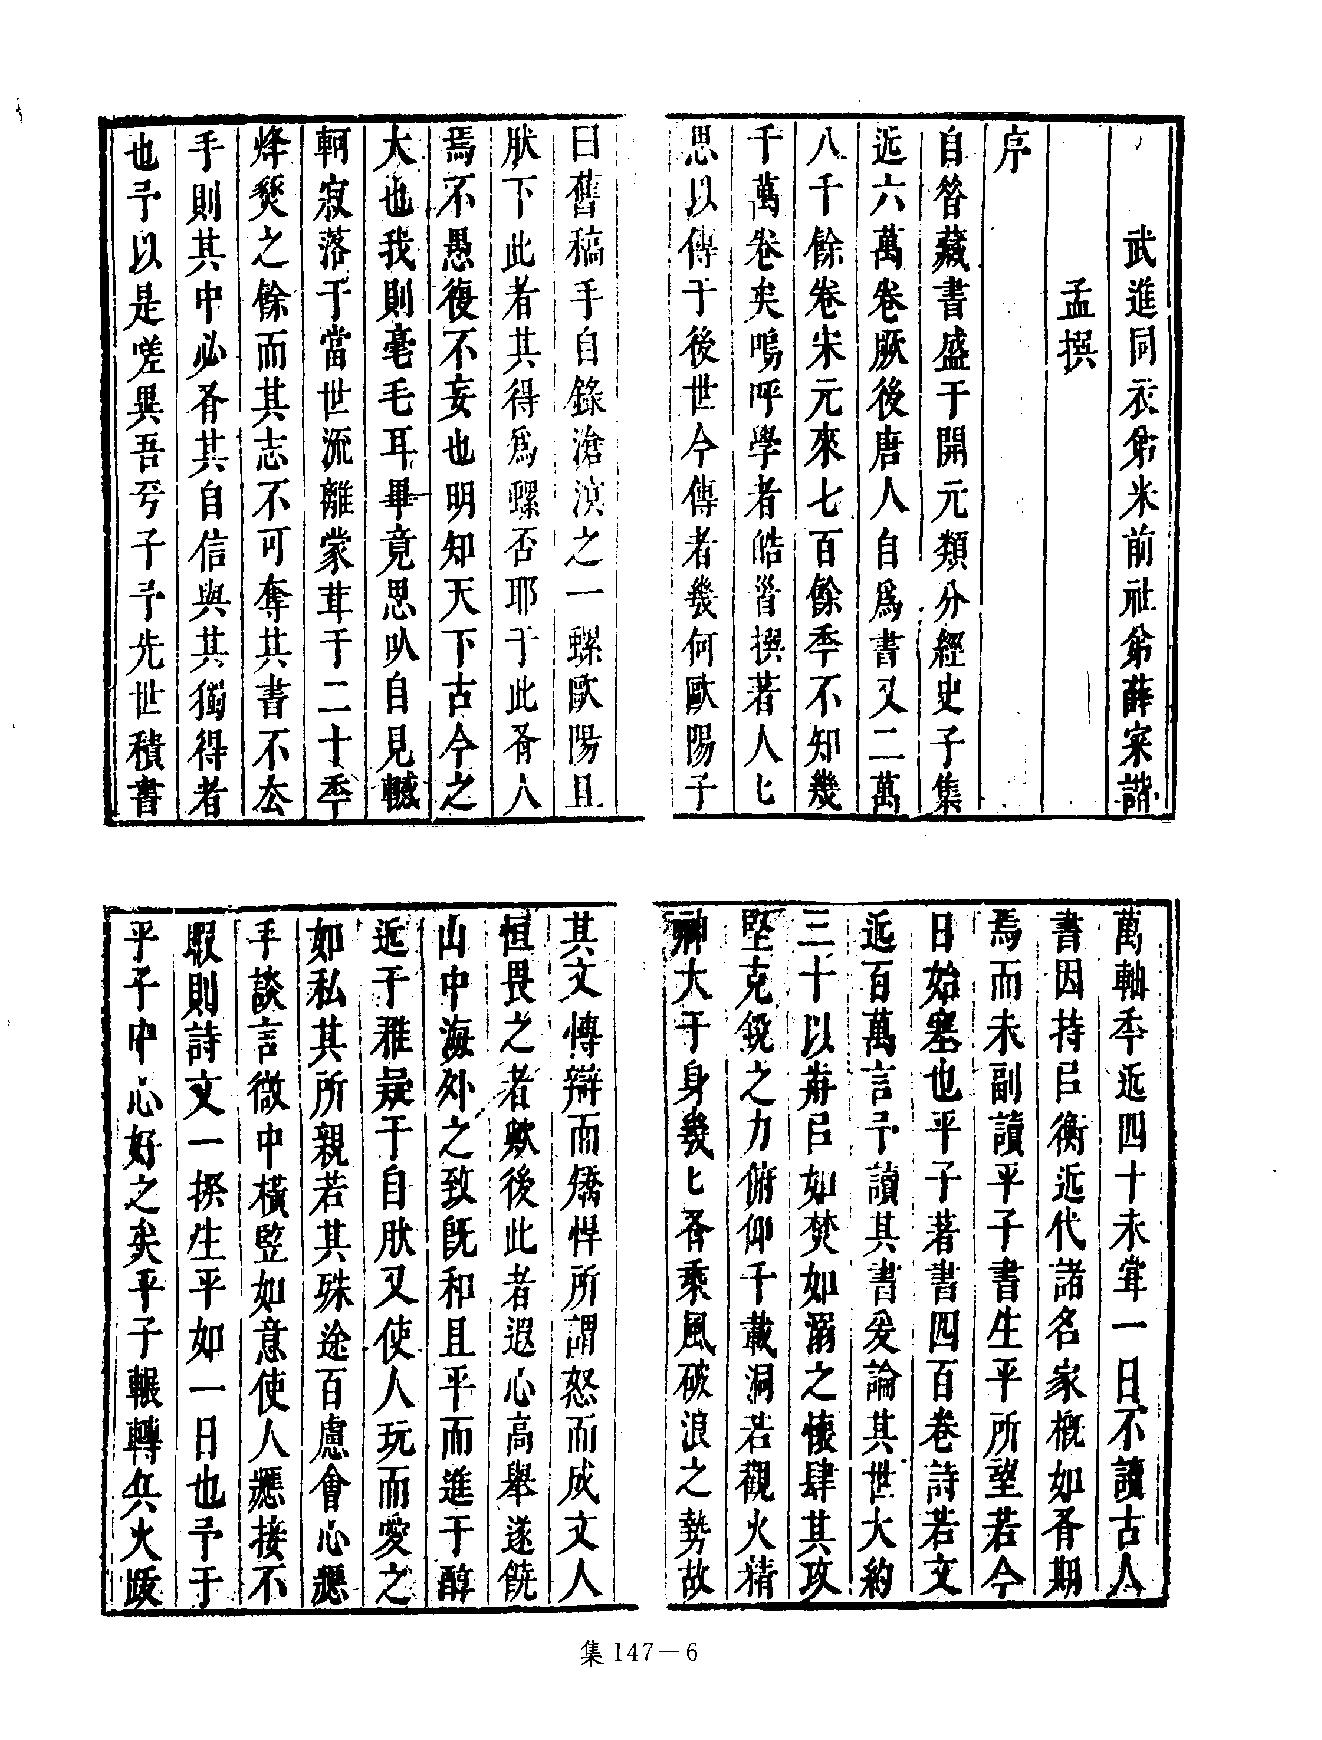 武進同衣弟米前社弟薛寀諧
孟撰
序
自昝藏書盛于開元類分經史子集
近六萬卷厥後唐人自爲書又二萬
八千餘卷宋元來七百餘秊不知幾
千萬卷矣嗚呼學者皓首撰著人人
思以傳于後世今傳者幾何歐陽子
曰舊稿手自錄滄溟之一螺歐陽且
肰下此者其得爲螺否耶于此有人
焉不愚復不妄也明知天下古今之
大也我則毫毛耳畢竟思㕥自見轗
軻寂落于當世流離蒙茸于二十秊
烽燹之餘而其志不可奪其書不去
手則其中必有其自信與其獨得者
也予以是嗟異吾兮子予先世積書
萬軸秊近四十未嘗一日不讀古人
書因持已衡近代諸名家概如有期
焉而未副讀平子書生平所望若今
日始塞也平子著書四百卷詩若文
近百萬言予讀其書爰論其世大約
三十以前已如焚如溺之懷肆其攻
堅克銳之力俯仰千載洞若觀火精
神大于身幾匕有乘風破浪之勢故
其文博辯而矯悍所謂怒而成文人
恒畏之者歟後此者遐心高舉遂饒
山中海外之致旣和且平而進于醇
近于雅疑于自肰又使人玩而愛之
如私其所親若其殊途百慮會心應
手談言微中橫竪如意使人應接不
暇則詩文一揆生平如一日也予于
平子中心好之矣平子輾轉兵火跋
集147－6